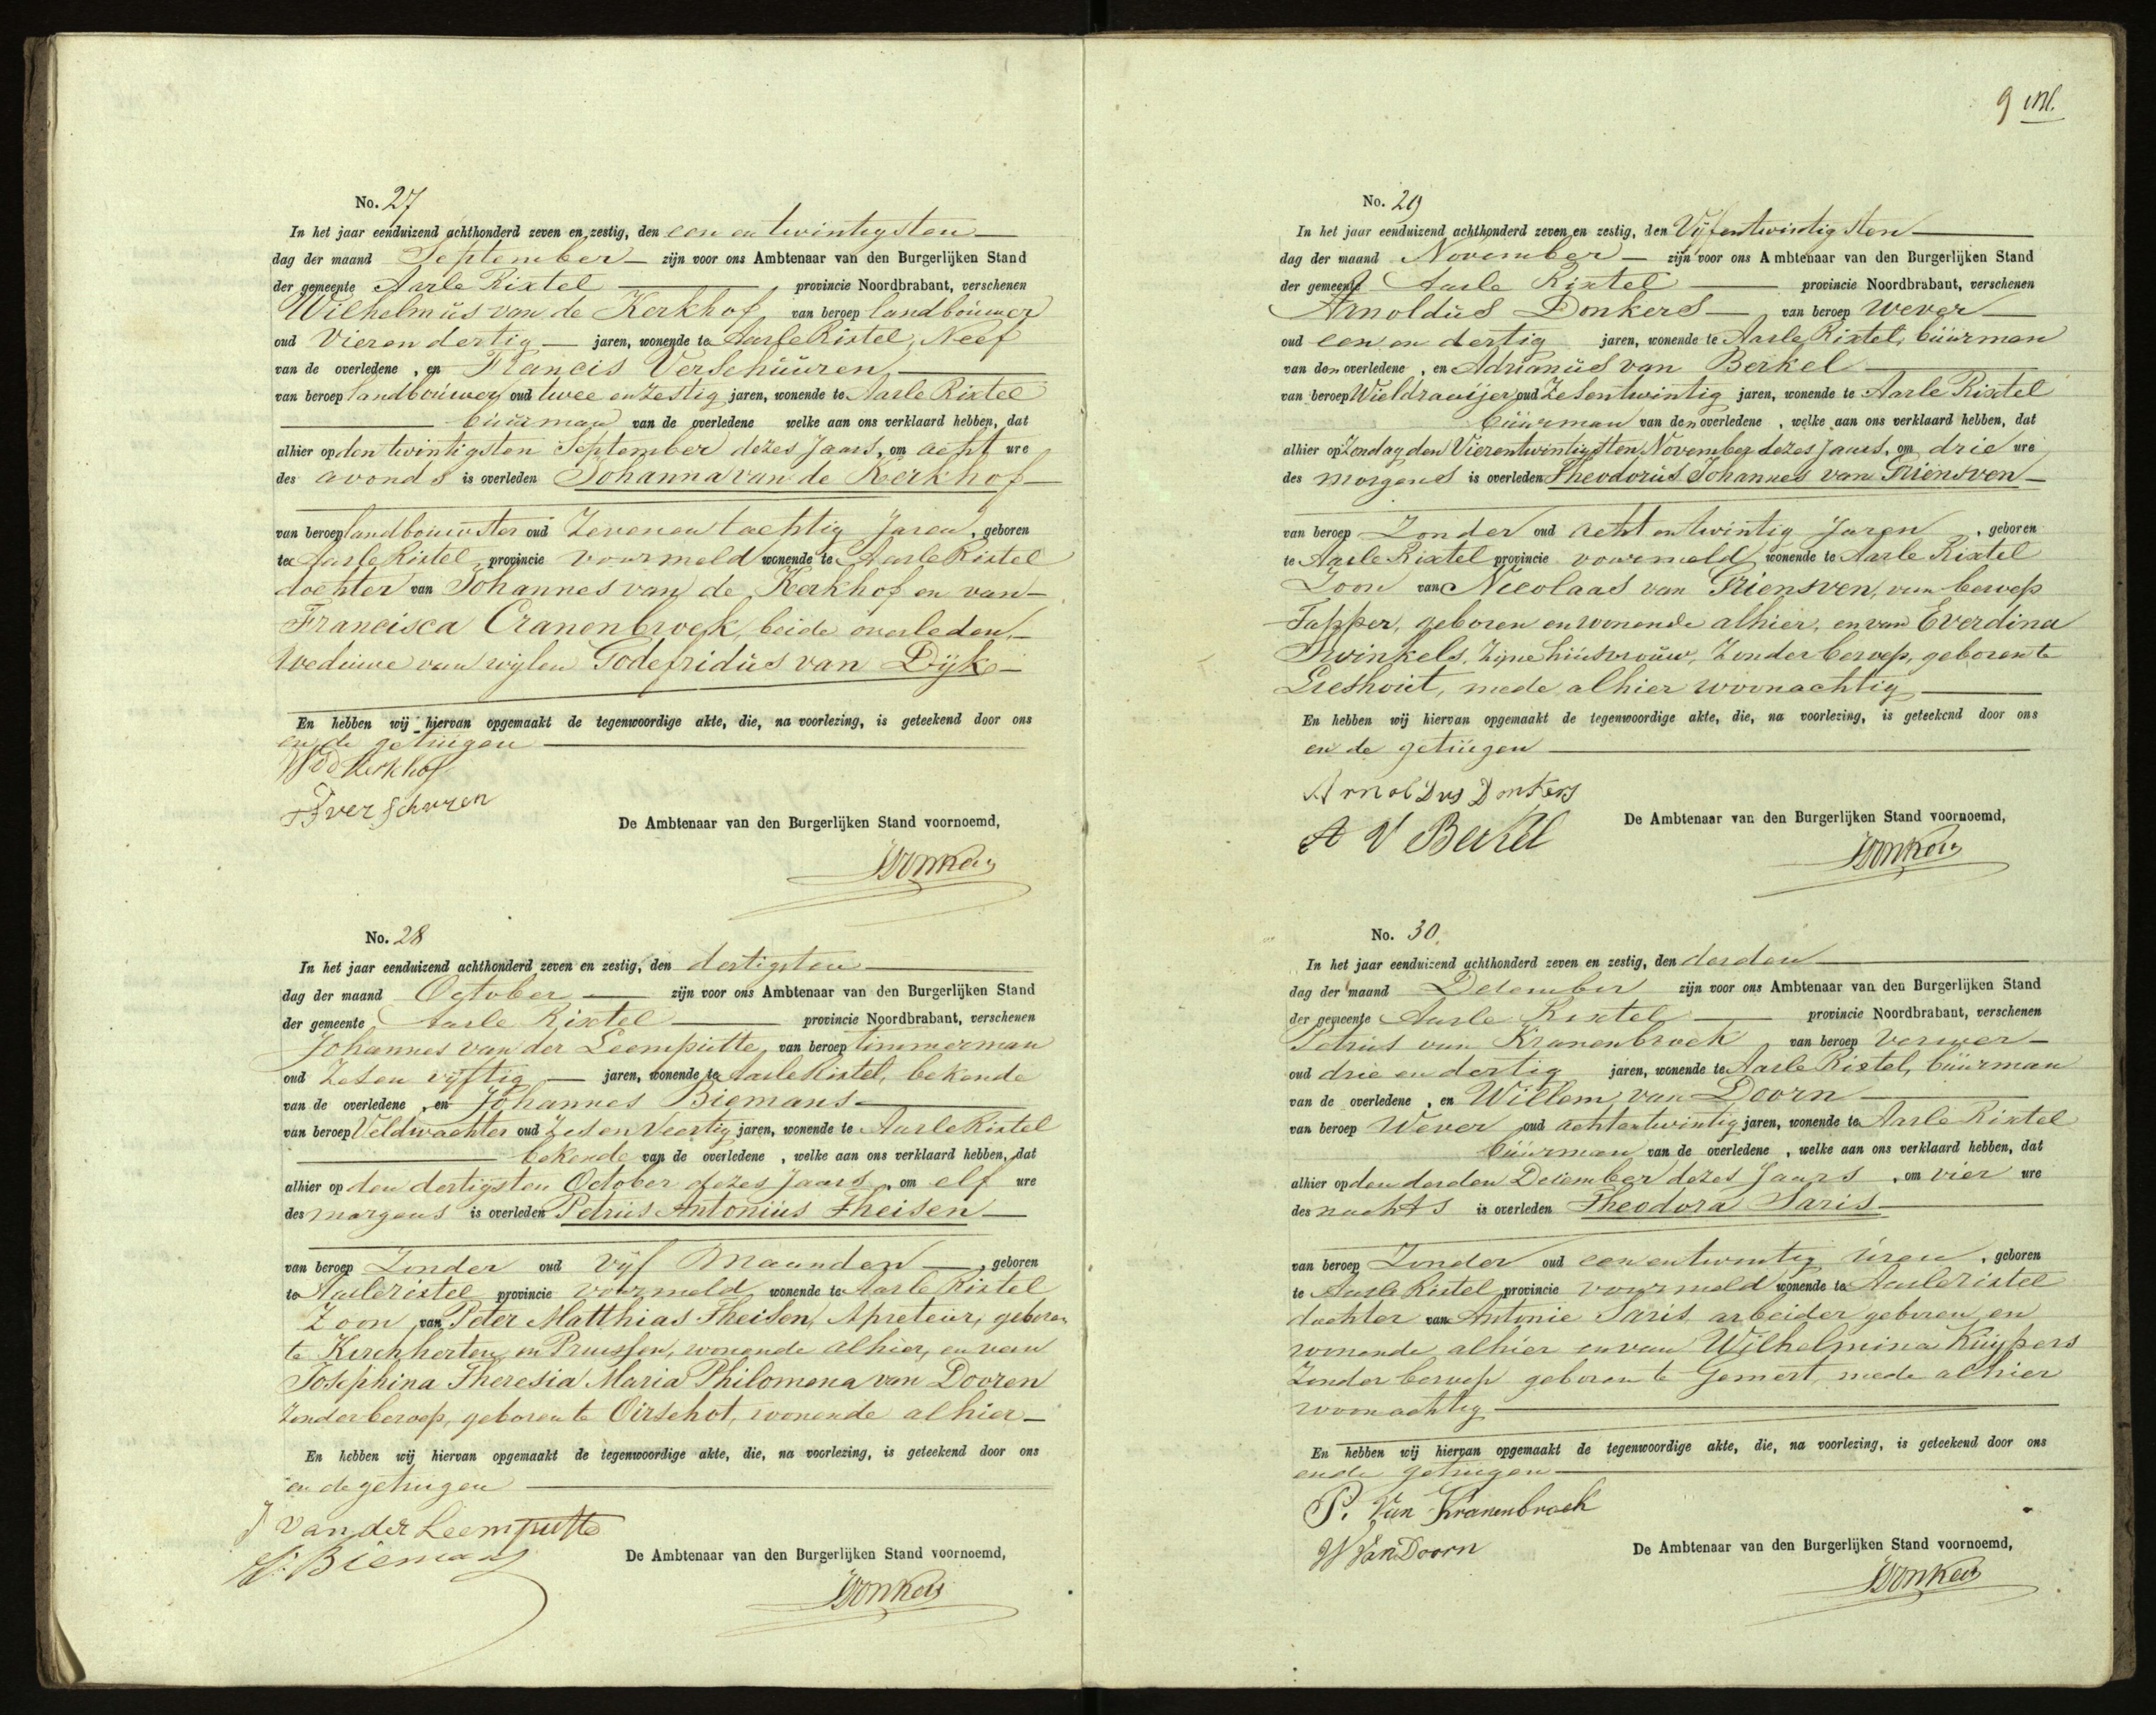 No. 27
In het jaar eenduizend achthonderd zeven en zestig, den een en twintigsten
dag der maand September zijn voor ons Ambtenaar van den Burgerlijken Stand
der gemeente Aarle Rixtel provincie Noordbrabant, verschenen
Wilhelmus van de Kerkhof, van beroep landbouwer
oud Vier en dertig jaren, wonende te Aarle Rixtel, Neef
van de overledene, en Francis Verschuuren
van beroep landbouwer oud twee en zestig jaren, wonende te Aarle Rixtel
buurman van de overledene welke aan ons verklaard hebben, dat
alhier op den twintigsten September dezes Jaars, om acht ure
des avonds is overleden Johanna van de Kerkhof
van beroep landbouwster oud Zeven en tachtig Jaren, geboren
te Aarle Rixtel provincie voormeld wonende te Aarle Rixtel
dochter van Johannes van de Kerkhof en van
Francisca Cranenbroek, beide overleden,
Weduwe van wijlen Godefridus van Dijk
En hebben wij hiervan opgemaakt de tegenwoordige akte, die, na voorlezing, is geteekend door ons
en de getuigen
W v d Kerkhof
F Verschuren
De Ambtenaar van den Burgerlijken Stand voornoemd,
Donkers
No. 28
In het jaar eenduizend achthonderd zeven en zestig, den dertigsten
dag der maand October zijn voor ons Ambtenaar van den Burgerlijken Stand
der gemeente Aarle Rixtel provincie Noordbrabant, verschenen
Johannes van der Leemputte, van beroep timmerman
oud Zes en vijftig jaren, wonende te Aarle Rixtel, bekende
van de overledene, en Johannes Biemans
van beroep Veldwachter oud Zes en Veertig jaren, wonende te Aarle Rixtel
bekende van de overledene, welke aan ons verklaard hebben, dat
alhier op den dertigsten October dezes Jaars, om elf ure
des morgens is overleden Petrus Antonius Theisen
van beroep Zonder oud Vijf Maanden, geboren
te Aarlerixtel provincie voormeld wonende te Aarle Rixtel
Zoon van Peter Matthias Theisen, Apreteur, geboren
te Kirchherten en Pruissen, wonende alhier, en van
Josephina Theresia Maria Philomena van Dooren
Zonder beroep, geboren te Oirschot, wonende alhier
En hebben wij hiervan opgemaakt de tegenwoordige akte, die, na voorlezing, is geteekend door ons
en de getuigen
J van der Leemputte
J. Biemans
De Ambtenaar van den Burgerlijken Stand voornoemd,
Donkers
9
No. 29
In het jaar eenduizend achthonderd zeven en zestig, den Vijfentwintigsten
dag der maand November zijn voor ons Ambtenaar van den Burgerlijken Stand
der gemeente Aarle Rixtel provincie Noordbrabant, verschenen
Arnoldus Donkers, van beroep Wever
oud een en dertig jaren, wonende te Aarle Rixtel, buurman
van den overledene, en Adrianus van Berkel
van beroep Wieldraaijer oud Zesentwintig jaren, wonende te Aarle Rixtel
buurman van den overledene, welke aan ons verklaard hebben, dat
alhier op Zondag den Vierentwintigsten November dezes Jaars, om drie ure
des morgens is overleden Theodorus Johannes van Griensven
van beroep Zonder oud acht en twintig Jaren, geboren
te Aarle Rixtel provincie voormeld wonende te Aarle Rixtel
Zoon van Nicolaas van Griensven, van beroep
Tapper, geboren en wonende alhier, en van Everdina
Swinkels, Zijne huisvrouw, Zonder beroep, geboren te
Lieshout, mede alhier woonachtig
En hebben wij hiervan opgemaakt de tegenwoordige akte, die, na voorlezing, is geteekend door ons
en de getuigen
Arnoldus Donkers
A V Berkel
De Ambtenaar van den Burgerlijken Stand voornoemd,
Donkers
No. 30
In het jaar eenduizend achthonderd zeven en zestig, den derden
dag der maand December zijn voor ons Ambtenaar van den Burgerlijken Stand
der gemeente Aarle Rixtel provincie Noordbrabant, verschenen
Petrus van Kranenbroek van beroep Verwer
oud drie en dertig jaren, wonende te Aarle Rixtel, buurman
van de overledene, en Willem van Doorn
van beroep Wever oud achtentwintig jaren, wonende te Aarle Rixtel
buurman van de overledene, welke aan ons verklaard hebben, dat
alhier op den derden December dezes Jaars, om vier ure
des nachts is overleden Theodora Saris
van beroep Zonder oud een entwintig uren, geboren
te Aarle Rixtel provincie voormeld wonende te Aarlerixtel
dochter van Antonie Saris arbeider geboren en
wonende alhier en van Wilhelmina Kuijpers
Zonder beroep geboren te Gemert, mede alhier
woonachtig
En hebben wij hiervan opgemaakt de tegenwoordige akte, die, na voorlezing, is geteekend door ons
en de getuigen
P. Van Kranenbroek
W Van Doorn
De Ambtenaar van den Burgerlijken Stand voornoemd,
Donkers